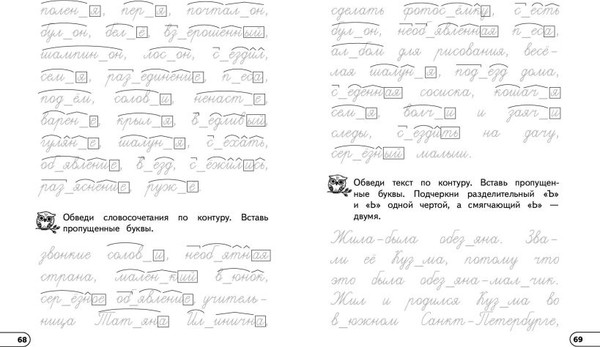 полен_е, пер_я, почтал_он,
бул_он, бел_ё, вз_ерошенный,
шампин_он, лос_он, с_ездил,
сем_я, раз_единение, п_еса,
под_ём, солов_и, ненаст_е,
варен_е, крыл_я, в_едливый,
гулян_е, шалун_я, с_ехать,
об_явление, в_езд, с_ёжились,
раз_яснение, руж_е.
Обведи словосочетания по контуру. Вставь
пропущенные буквы.
звонкие солов_и, необ_ятная
страна, мален_кий в_юнок,
сер_ёзное об_явление учитель-
ница Тат_яна Ил_инична,
68
сделать фотос_ёмку, с_есть
бул_он, необ_явленная п_еса,
ал_бом для рисования, весё-
лая шалун_я, под_езд дома,
с_еденная сосиска, кошач_я
сем_я, волч_и и заяч_и
следы, с_ездить на дачу,
сер_ёзный малыш.
Обведи текст по контуру. Вставь пропущен-
ные буквы. Подчеркни разделительный «Ъ»
и «Ь» одной чертой, а смягчающий «Ь» —
двумя.
Жила-была обез_яна. Зва-
ли её Куз_ма, потому что
это была обез_яна-мал_чик.
Жил и родился Куз_ма во
в_южном Санкт-Петербурге,
69